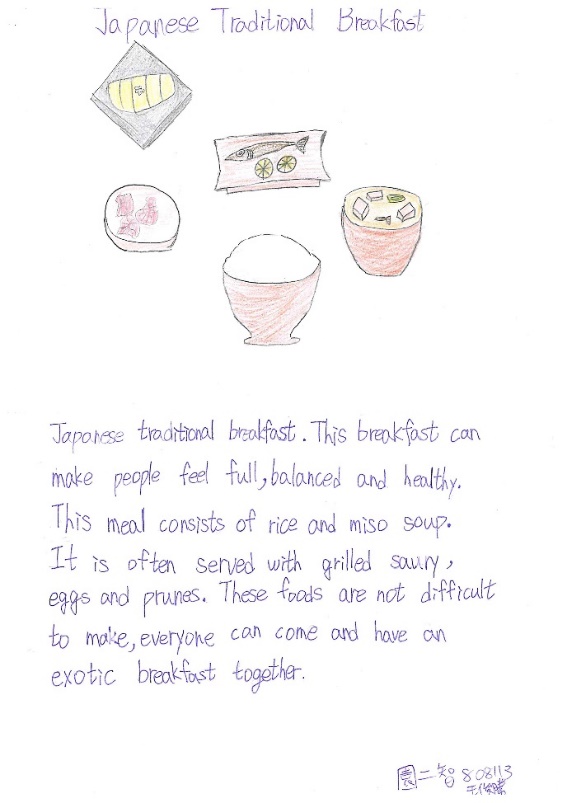 Japanese Traditional Breakfast
Japanese traditional breakfast. This breakfast can
make people feel full, balanced and healthy.
This meal consists of rice and miso soup.
It is often served with grilled saury,
eggs and prunes. These foods are not difficult
to make, everyone can come and have an
exotic breakfast together.
二智 808113